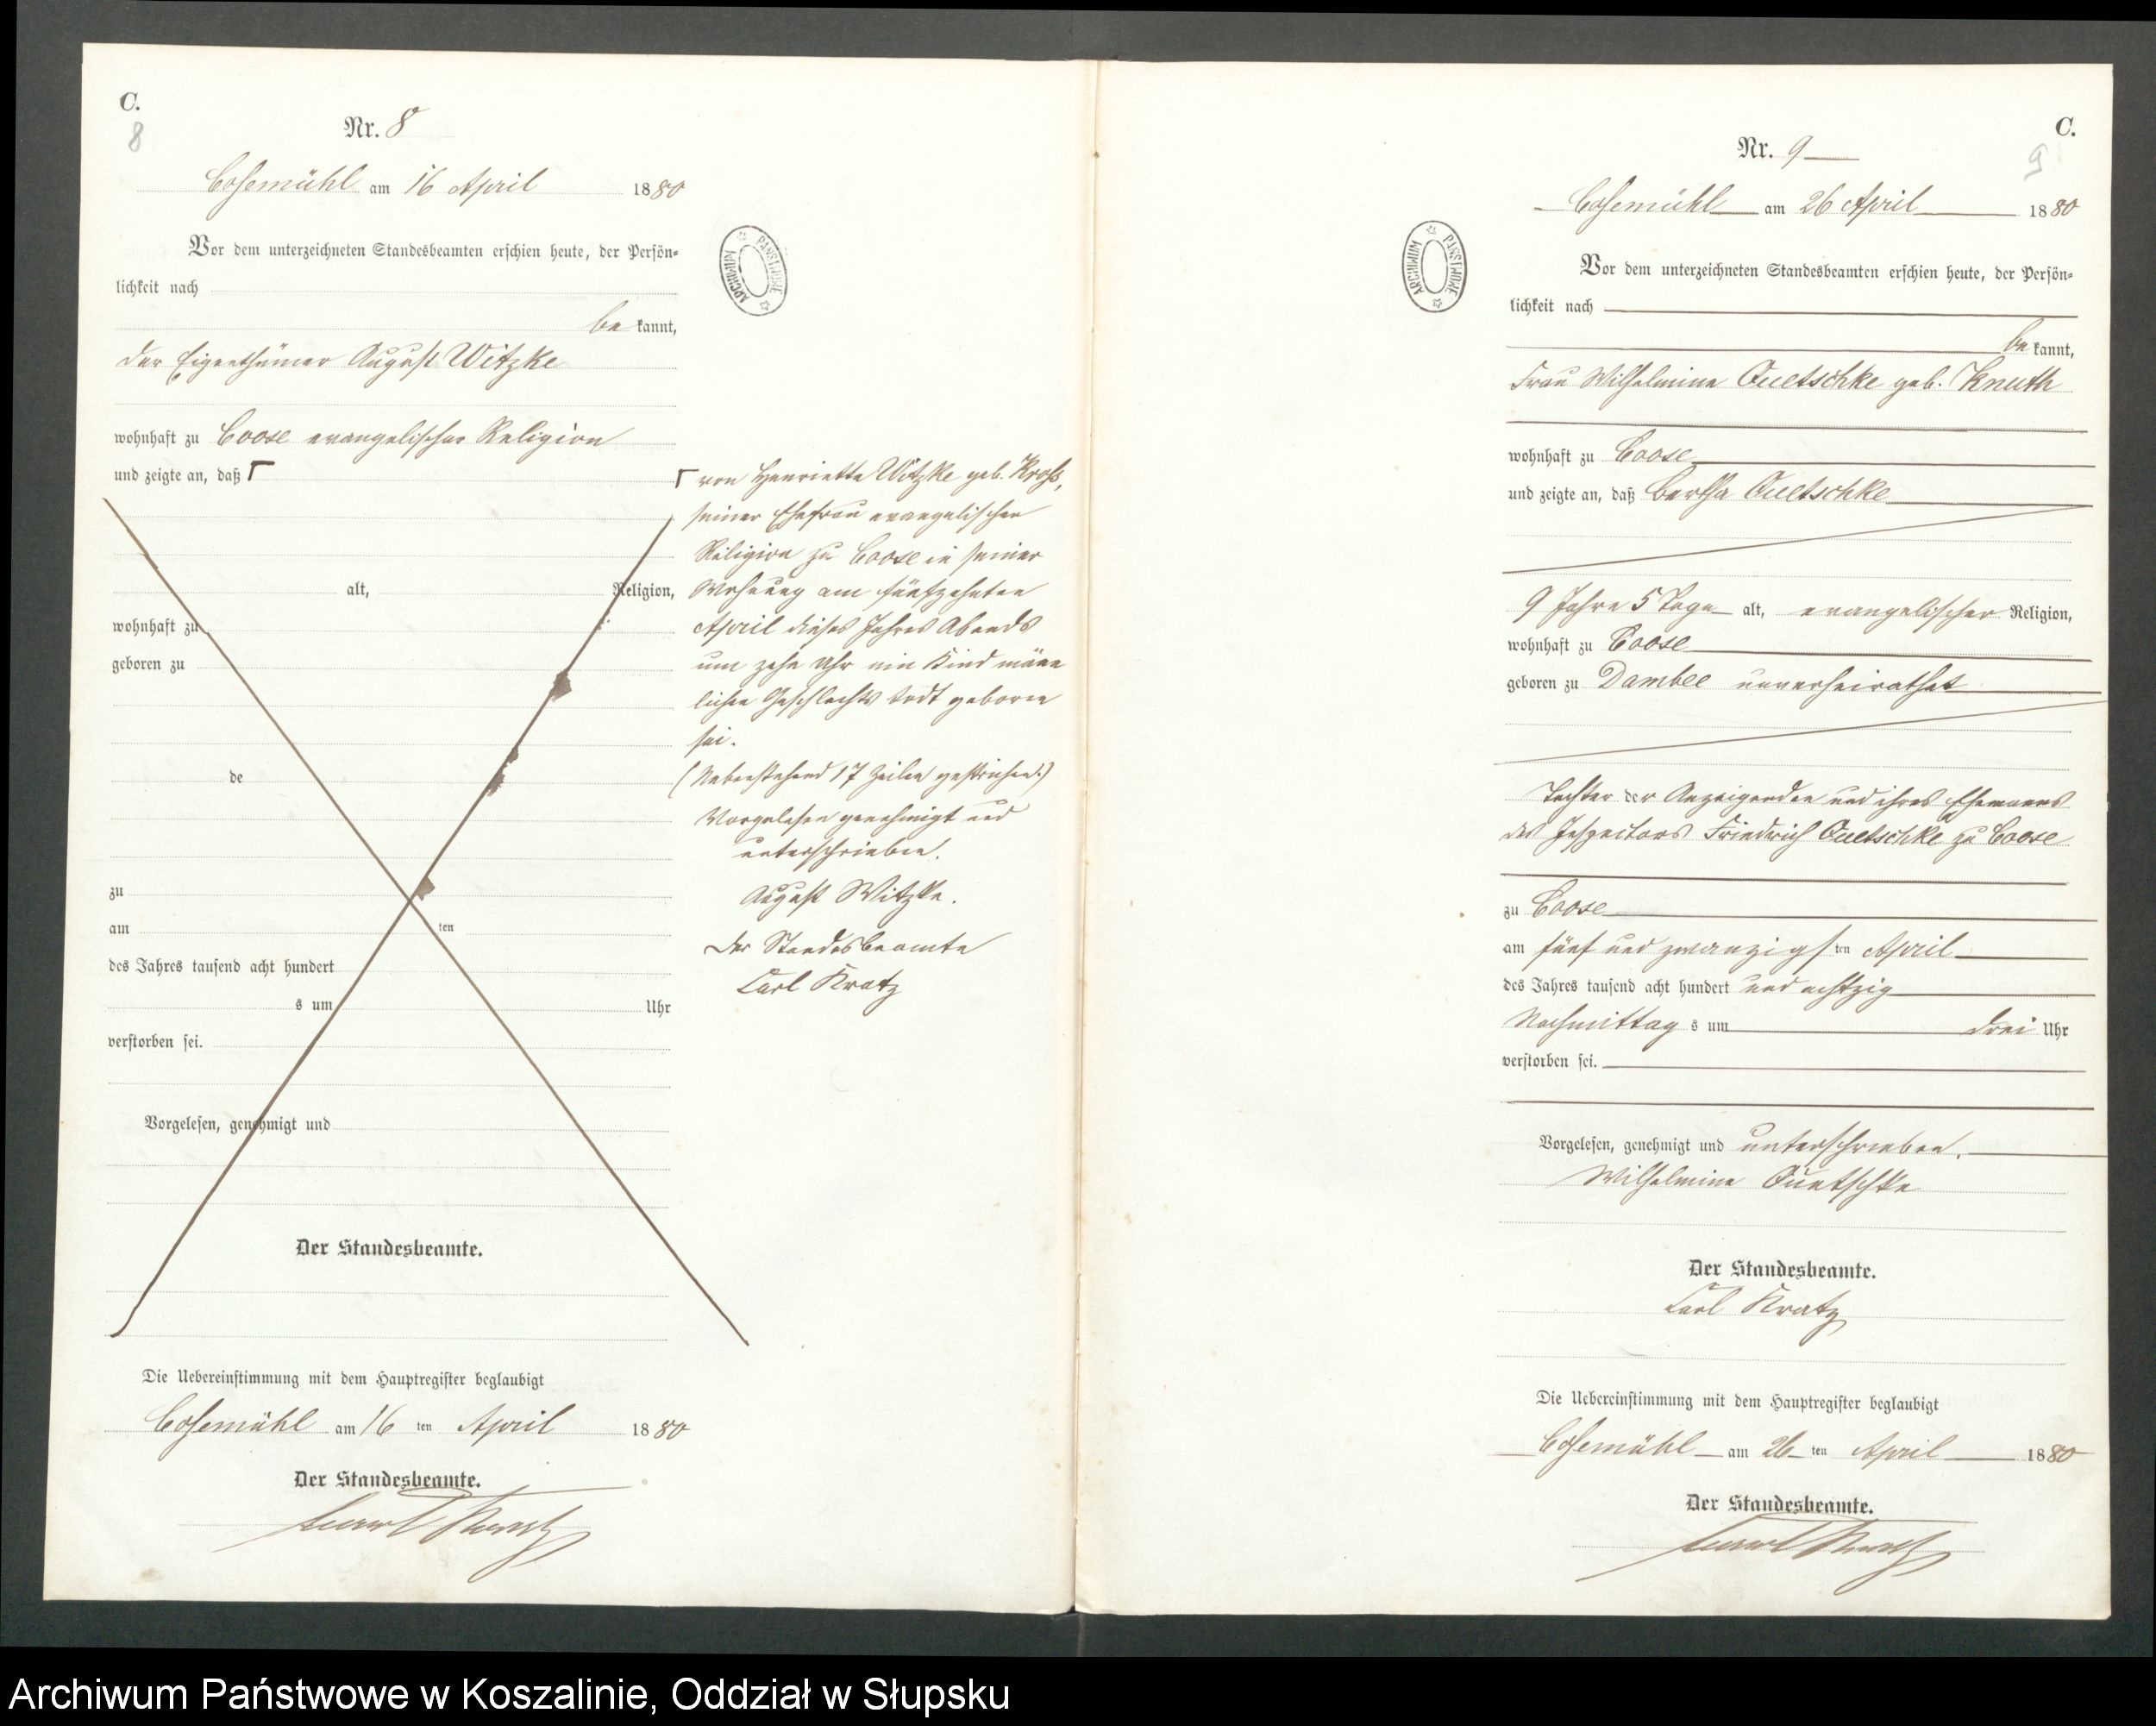 C.
8
Nr. 8
Cosemühl am 16 April 1880
Vor dem unterzeichneten Standesbeamten erschien heute, der Persön-
lichkeit nach
be kannt,
der Eigenthümer August Witzke
wohnhaft zu Coose evangelischer Religion
und zeigte an, daß Γ
alt, Religion,
wohnhaft zu
geboren zu
de
zu
am ten
des Jahres tausend acht hundert
s um Uhr
verstorben sei.
Vorgelesen, genehmigt und
Der Standesbeamte.
Die Uebereinstimmung mit dem Hauptregister beglaubigt
Cosemühl am 16 ten April 1880
Der Standesbeamte.
Carl Kratz
ARCHIWUM PAŃSTWOWE
Γ von Henriette Witzke geb. Kross,
seiner Ehefrau evangelischen
Religion zu Coose in seiner
Wohnung am fünfzehnten
April dieses Jahres Abends
um zehn Uhr ein Kind männ
lichen Geschlechts todt geboren
sei.
(Nebenstehend 17 Zeilen gestrichen.)
Vorgelesen genehmigt und
unterschrieben.
August Witzke.
Der Standesbeamte
Carl Kratz
C.
9
Nr. 9
Cosemühl am 26 April 1880
ARCHIWUM PAŃSTWOWE
Vor dem unterzeichneten Standesbeamten erschien heute, der Persön-
lichkeit nach
be kannt,
Frau Wilhelmine Quetschke geb. Knuth
wohnhaft zu Coose
und zeigte an, daß Bertha Quetschke
9 Jahre 5 Tage alt, evangelischer Religion,
wohnhaft zu Coose
geboren zu Dambee unverheirathet
Tochter der Anzeigenden und ihres Ehemanns
des Inspectors Friedrich Quetschke zu Coose
zu Coose
am fünf und zwanzigs ten April
des Jahres tausend acht hundert und achtzig
Nachmittag s um drei Uhr
verstorben sei.
Vorgelesen, genehmigt und unterschrieben.
Wilhelmine Quetschke
Der Standesbeamte.
Carl Kratz
Die Uebereinstimmung mit dem Hauptregister beglaubigt
Cosemühl am 26 ten April 1880
Der Standesbeamte.
Carl Kratz
Archiwum Państwowe w Koszalinie, Oddział w Słupsku